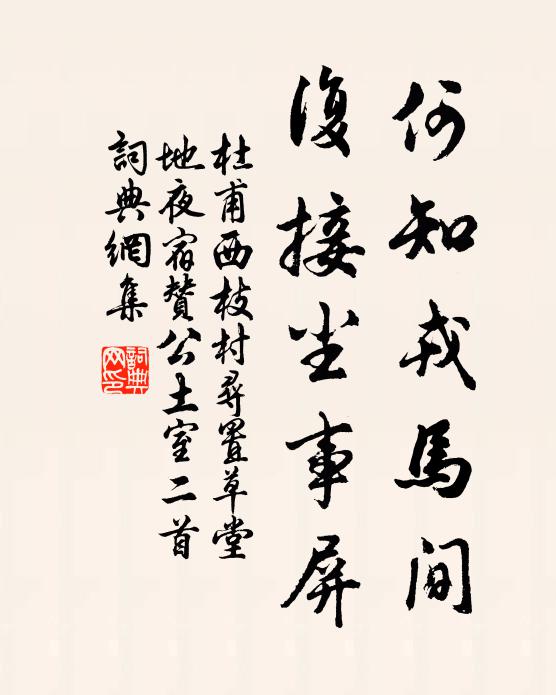 何知戎馬间
復接尘事屏
杜甫西枝村尋置草堂
地夜宿贊公土室二首
詞典網集
詞典
网印